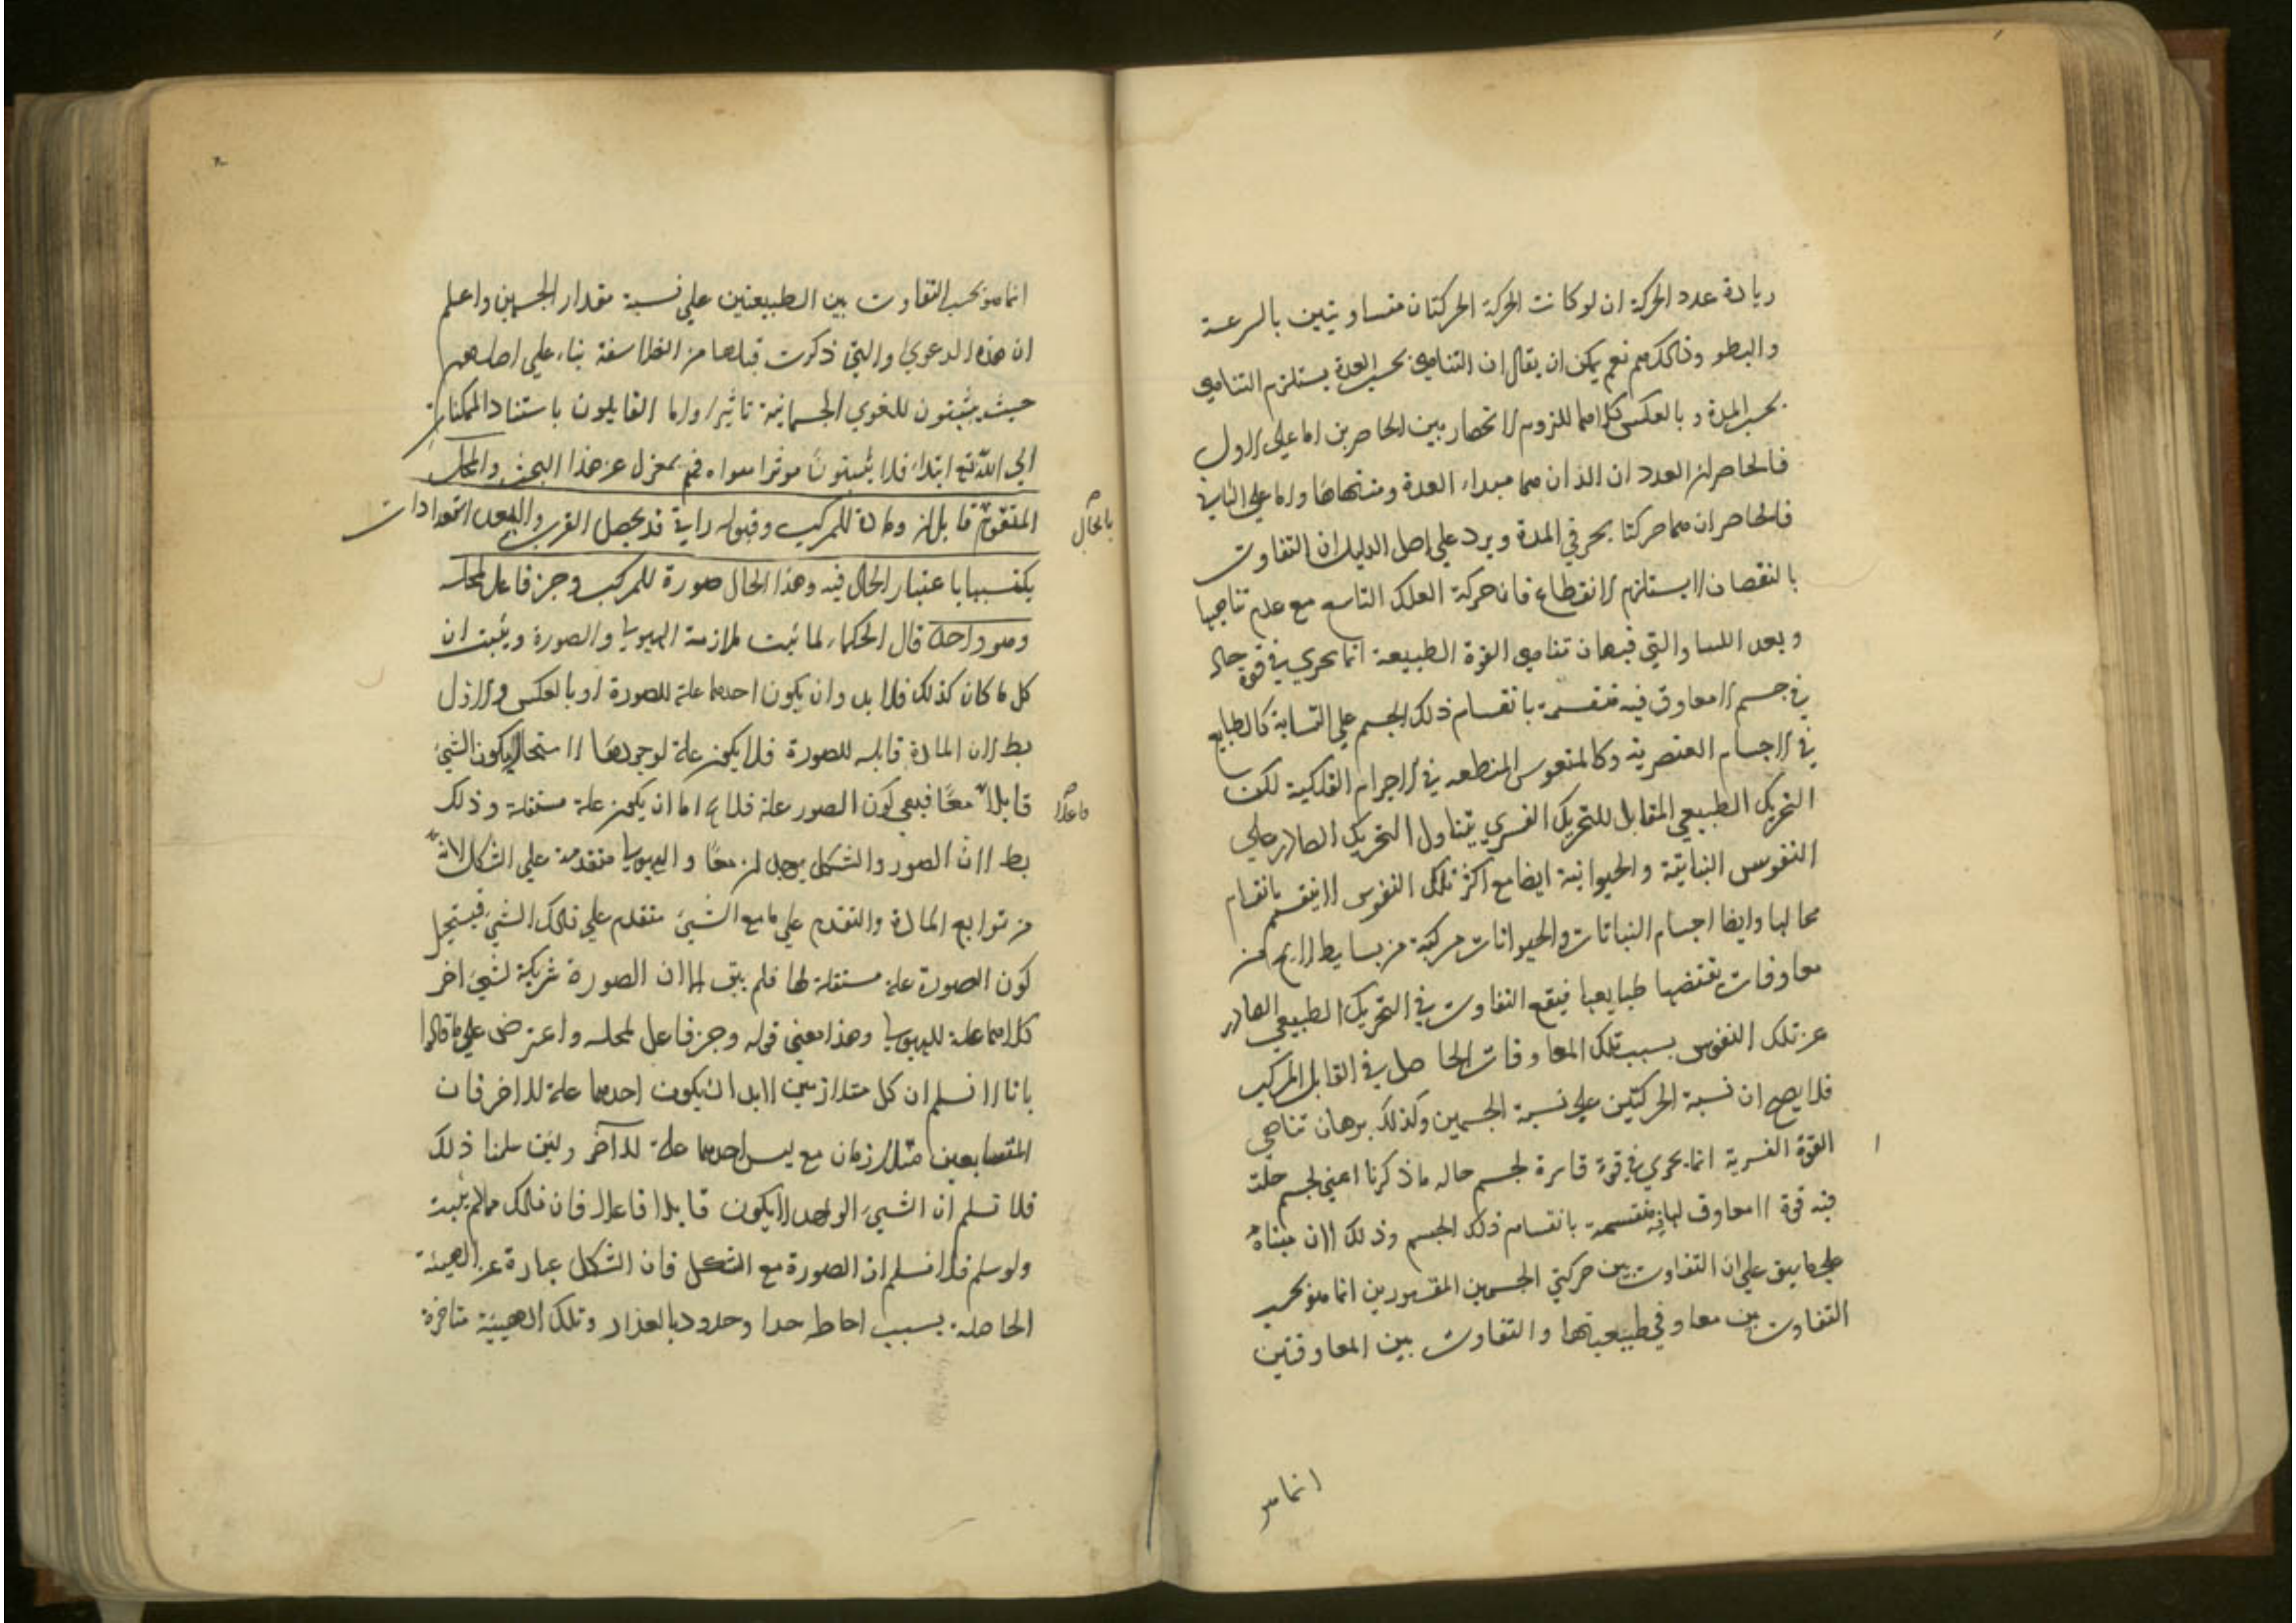 ريادة عدد الحركة ان لو كانت الحركة الحركتان متساويتين بالسرعة
والبطو وذلك مم نعم يمكن ان يقال ان التناهي بحسب العدة يستلزم التناهي
بحسب المدة وبالعكس كلاهما للزوم الانحصار بين الحاصرين اما على الاول
فالحاصران العدد ان الذان هما مبداء العدة ومنتهاها واما على الثاني
فالحاصران هما حركتا بحر في المدة ويرد علي اصل الدليل ان التفاوت
بالنقصان لا يستلزم الانقطاع فان حركة الفلك التاسع مع عدم تناهيها
وبعد اللسا والتي فبرهان تناهي القوة الطبيعة انما يجري في قوة حاله
في جسم لا معاوق فيه منقسمة بانقسام ذلك الجسم علي التشابه كالطبايع
في الاجسام العنصرية وكالمنفوس المنطبعه في الاجرام الفلكية لكن
التحريك الطبيعي المقابل للتحريك القسري يتناول التحريك الصادر علي
النفوس النباتية والحيوانية ايضا مع اكثر تلك النفوس لا ينقسم بانقسام
محالها وايضا اجسام النباتات والحيوانات مركبة من بسايط لا يخ من
معاوقات تقتضيها طبايعها فيقع التفاوت في التحريك الطبيعي الصادر
عن تلك النفوس بسبب تلك المعاوقات الحاصل في القابل المركب
فلا يصح ان نسبة الحركتين علي نسبة الجسمين وكذلك برهان تناهي
القوة القسرية انما يجري في قوة قاسرة لجسم حاله ما ذكرنا اعني لجسم حلت
فيه قوة لا معاوق لها منقسمة بانقسام ذلك الجسم وذلك لان مبناه
علي ما سبق علي ان التفاوت بين حركتي الجسمين المقسورين انما هو بحسب
التفاوت بين معاوقي طبيعتها والتفاوت بين المعاوقتين
انما هو
انما هو بحسب التفاوت بين الطبيعتين علي نسبة مقدار الجسمين واعلم
ان هذه الدعوي والتي ذكرت قبلها من الفلاسفة بناء علي اصلهم
حيث يثبتون للقوي الجسمانية تاثيرا واما القايلون باستناد الممكنات
الي الله تع ابتداء فلا يثبتون موثرا سواه فهم بمعزل عن هذا البحث والمحل
المتقوم قابل له ومادة للمركب وقبوله ذاتي قد يحصل القرب والبعد استعدادات
بالحال
يكتسبها باعتبار الحال فيه وهذا الحال صورة للمركب وجز فاعل لمحله
وهو واحد قال الحكماء لما ثبت ملازمة الهيولي والصورة ويثبت ان
كل ما كان كذلك فلا بد وان يكون احدهما علة للصورة او بالعكس والاول
بط لان المادة قابله للصورة فلا يكون علة لوجودها لاستحالة كون الشيئ
قابلا معا فبقي كون الصور علة فلا يخ اما ان يكون علة مستقلة وذلك
فاعلا
بط لان الصور والشكل يوجدان معا والهيولي متقدمة علي الشكل لانه
من توابع المادة والتقدم علي ما مع الشيئ متقدم علي ذلك الشيئ فيستحيل
كون الصورة علة مستقلة لها فلم يبق الا ان الصورة شريكة لشيئ اخر
كلاهما علة للهيولي وهذا معني قوله وجز فاعل لمحله واعترض علي ما قالوا
بانا لا نسلم ان كل متلازمين لابد ان يكون احدهما علة للاخر فان
المتضايفين متلازمان مع ليس احدهما علة للآخر ولئن سلمنا ذلك
فلا نسلم ان الشيئ الواحد لا يكون قابلا فاعلا فان ذلك مما لم يثبت
ولو سلم فلا نسلم ان الصورة مع الشكل فان الشكل عبارة عن الهيئة
الحاصلة بسبب احاطه حدا وحدود بالمقدار وتلك الهيئة متاخرة